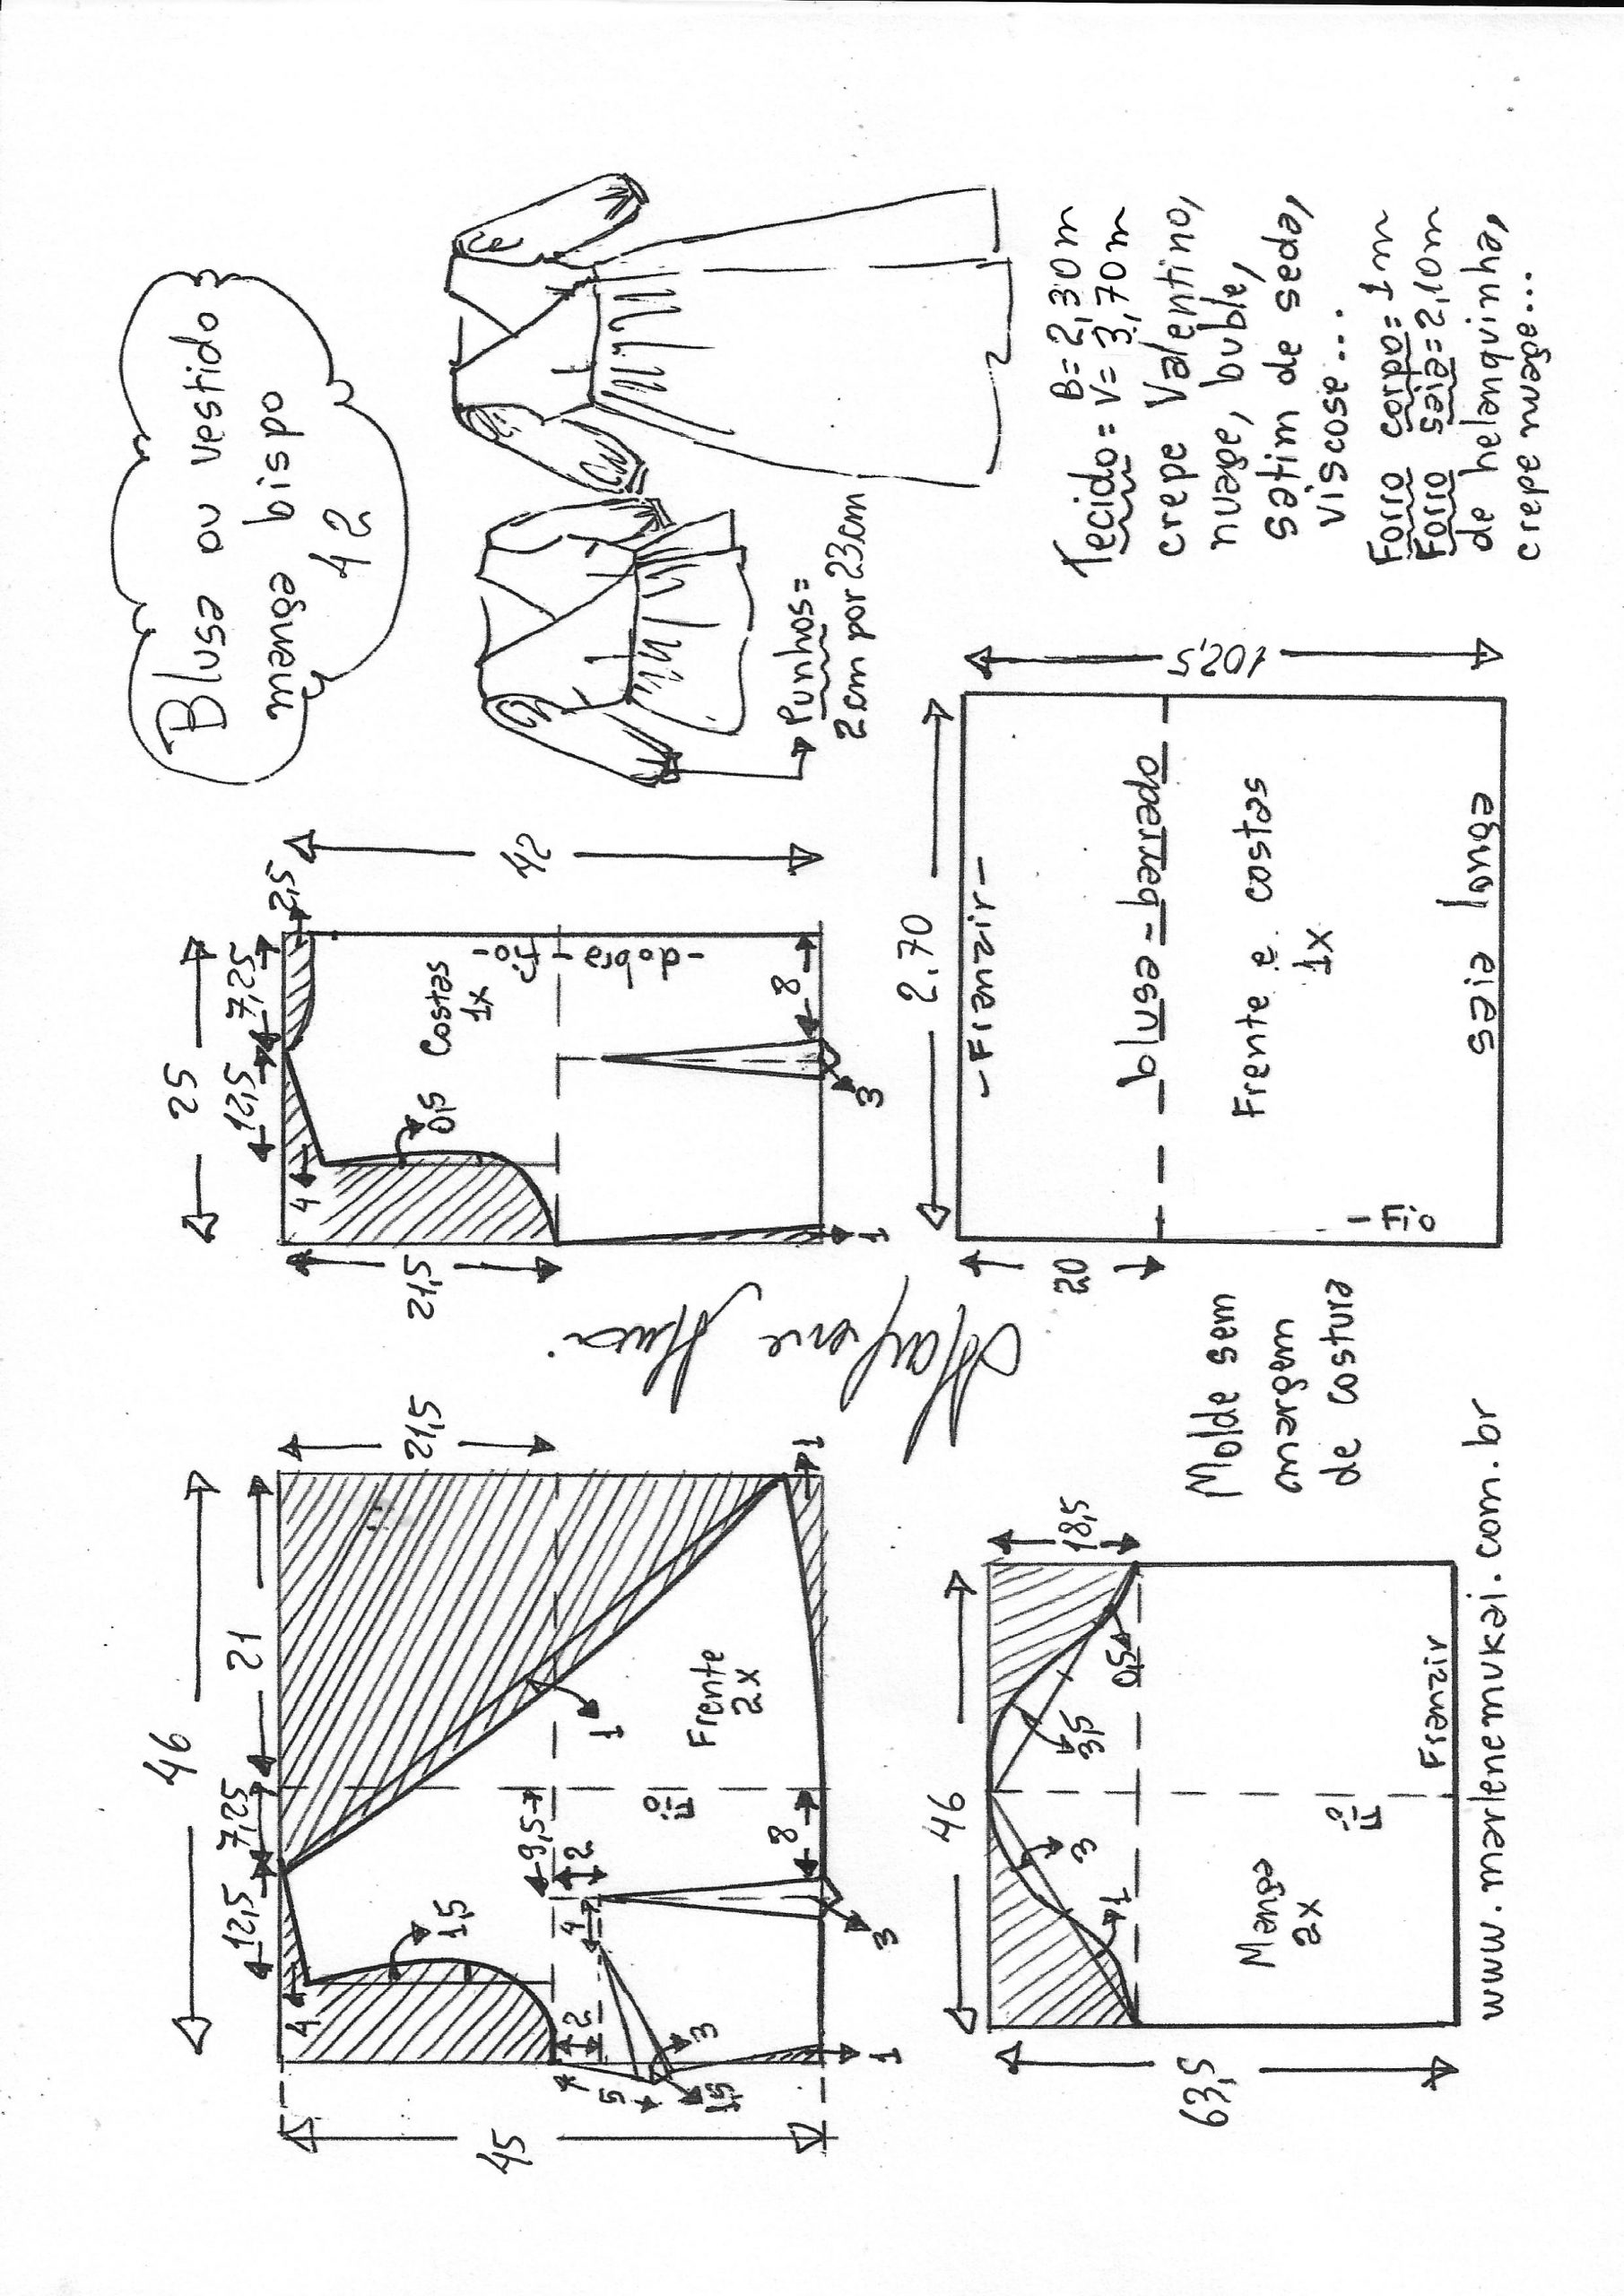 Blusa ou vestido
manga bispo
42
46
12,5
7,25
21
4
1,5
21,5
1
9,5
2
4
2
5
1,5
3
Fio
Frente
2x
8
3
1
1
45
25
12,5
7,25
2,5
4
0,5
Costas
1x
- fio -
- dobra -
21,5
42
8
3
1
Punhos =
2cm por 23cm
Tecido = B= 2,30m
V= 3,70m
crepe Valentino,
nuage, buble,
satim de seda,
viscose...
Forro corpo = 1m
Forro saia = 2,10m
de helanquinha,
crepe nuage...
46
18,5
3
1
3,5
0,5
Manga
2x
Fio
Franzir
63,5
Molde sem
margem
de costura
2.70
- Franzir -
20
blusa = barrado
Frente e costas
1x
Fio
saia longa
102,5
www.marlenemukai.com.br